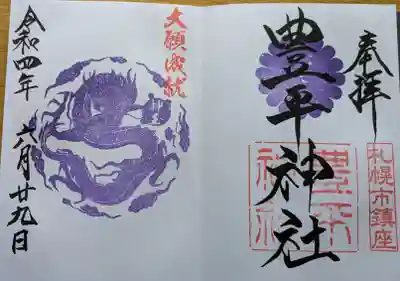 奉拝
札幌市鎮座
豊平神社
豊平
神社
大願成就
令和四年
六月廿九日